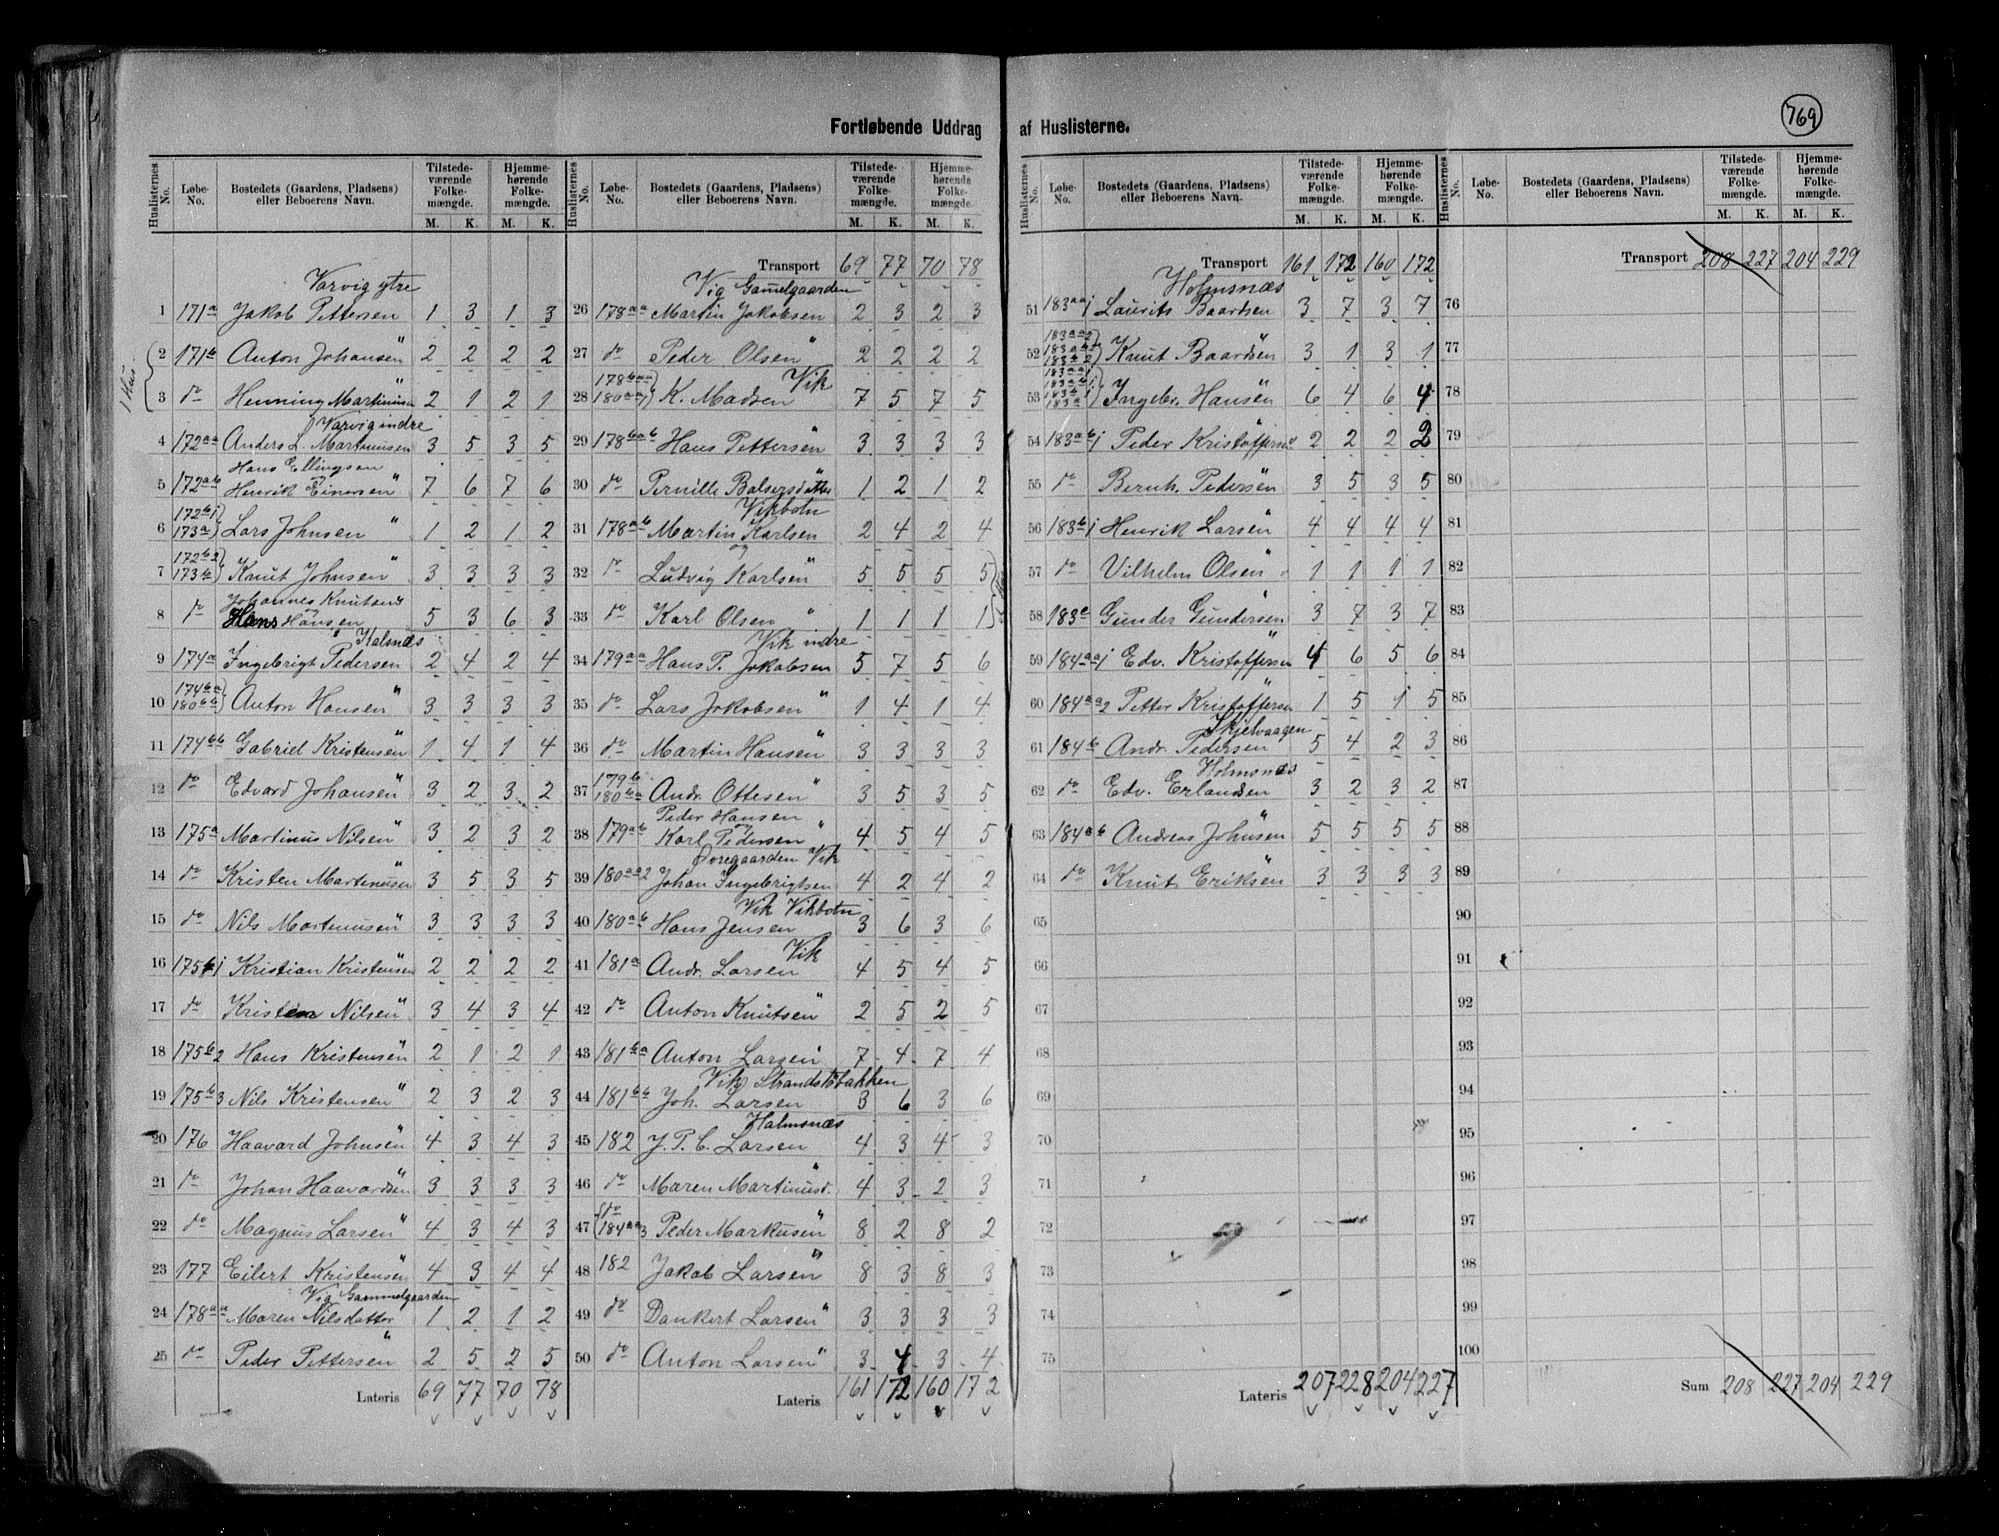 769
Fortløbende Uddrag af Huslisterne.
Huslisternes No. Løbe-No. Bostedets (Gaardens, Pladsens) eller Beboerens Navn. Tilstedeværende Folkemængde. M. K. Hjemmehørende Folkemængde. M. K.
1 Hus.
Varvig ytre
1 171a Jakob Pettersen 1 3 1 3
2 171b Anton Johansen " 2 2 2 2
3 do Henning Martinusen " 2 1 2 1
Varvig indre
4 172aa Anders L. Martinusen 3 5 3 5
Hans Ellingsen
5 172ab Henrik Einersen " 7 6 7 6
6 172b1 173a Lars Johnsen " 1 2 1 2
7 172b2 173b Knut Johnsen " 3 3 3 3
Johannes Knutsen
8 do Hans Hansen " 5 3 6 3
Kalsnæs
9 174a Ingebrigt Pedersen 2 4 2 4
10 174ba 180bb Anton Hansen " 3 3 3 3
11 174bb Gabriel Kristensen " 1 4 1 4
12 do Edvard Johansen " 3 2 3 2
13 175a Martinus Nilsen " 3 2 3 2
14 do Kristen Martinusen " 3 5 3 5
15 do Nils Martinusen " 3 3 3 3
16 175b1 Kristian Kristensen " 2 2 2 2
17 do Kristen Nilsen " 3 4 3 4
18 175b2 Hans Kristensen " 2 1 2 1
19 175b3 Nils Kristensen " 2 3 2 3
20 176 Haavard Johnsen " 4 3 4 3
21 do Johan Haavardsen " 3 3 3 3
22 do Magnus Larsen " 4 3 4 3
23 177 Eilert Kristensen " 4 3 4 4
Vig Gammelgaarden
24 178aa Maren Nilsdatter 1 2 1 2
25 do Peder Pettersen " 2 5 2 5
Lateris 69 77 70 78
Huslisternes No. Løbe-No. Bostedets (Gaardens, Pladsens) eller Beboerens Navn. Tilstedeværende Folkemængde. M. K. Hjemmehørende Folkemængde. M. K.
Transport 69 77 70 78
Vig Gammelgaarden
26 178aa Martin Jakobsen 2 3 2 3
27 do Peder Olsen " 2 2 2 2
Vik
28 178baa 180aa1 K. Madsen 7 5 7 5
29 178bab Hans Pettersen " 3 3 3 3
30 do Pernille Balsersdatter " 1 2 1 2
Vikbotn
31 178ab Martin Karlsen 2 4 2 4
og
32 do Ludvig Karlsen " 5 5 5 5
33 do Karl Olsen " 1 1 1 1
Vik indre
34 179aa Hans P. Jakobsen 5 7 5 6
35 do Lars Jakobsen " 1 4 1 4
36 do Martin Hansen " 3 3 3 3
37 179b 180ba Andr. Ottesen " 3 5 3 5
Peder Hansen
og
38 179ab Karl Pedersen " 4 5 4 5
Øvregaarden Vik
39 180aa2 Johan Ingebrigtsen 4 2 4 2
Vik Vikbotn
40 180ab Hans Jensen 3 6 3 6
Vik
41 181a Andr. Larsen 4 5 4 5
42 do Anton Knutsen " 2 5 2 5
43 181ba Anton Larsen " 7 4 7 4
Vik Strandsbakken
44 181bb Joh. Larsen 3 6 3 6
Holmsnæs
45 182 J. P. C. Larsen 4 3 4 3
46 do Maren Martinusd. " 4 3 2 3
47 do 184aa3 Peder Markusen " 8 2 8 2
48 182 Jakob Larsen " 8 3 8 3
49 do Dankert Larsen " 3 3 3 3
50 do Anton Larsen " 3 4 3 4
Lateris 161 172 160 172
Huslisternes No. Løbe-No. Bostedets (Gaardens, Pladsens) eller Beboerens Navn. Tilstedeværende Folkemængde. M. K. Hjemmehørende Folkemængde. M. K.
Transport 161 172 160 172
Holmsnæs
51 183aa1 Laurits Baardsen 3 7 3 7
52 183aa2 183b2 Knut Baardsen " 3 1 3 1
53 183b1 Ingebr. Hansen " 6 4 6 4
54 183ab1 Peder Kristoffersen " 2 2 2 2
55 do Bernh. Pedersen " 3 5 3 5
56 183b1 Henrik Larsen " 4 4 4 4
57 do Vilhelm Olsen " 1 1 1 1
58 183c Gunder Gundersen " 3 7 3 7
59 184aa1 Edv. Kristoffersen " 4 6 5 6
60 184aa2 Petter Kristoffersen " 1 5 1 5
Skjelvaagen
61 184b Andr. Pedersen 5 4 2 3
Holmsnæs
62 do Edv. Erlandsen 3 2 3 2
63 184ab Andreas Johnsen " 5 5 5 5
64 do Knut Eriksen " 3 3 3 3
65
66
67
68
69
70
71
72
73
74
75
Lateris 207 228 204 227
Huslisternes No. Løbe-No. Bostedets (Gaardens, Pladsens) eller Beboerens Navn. Tilstedeværende Folkemængde. M. K. Hjemmehørende Folkemængde. M. K.
Transport 208 227 204 229
76
77
78
79
80
81
82
83
84
85
86
87
88
89
90
91
92
93
94
95
96
97
98
99
100
Sum 208 227 204 229